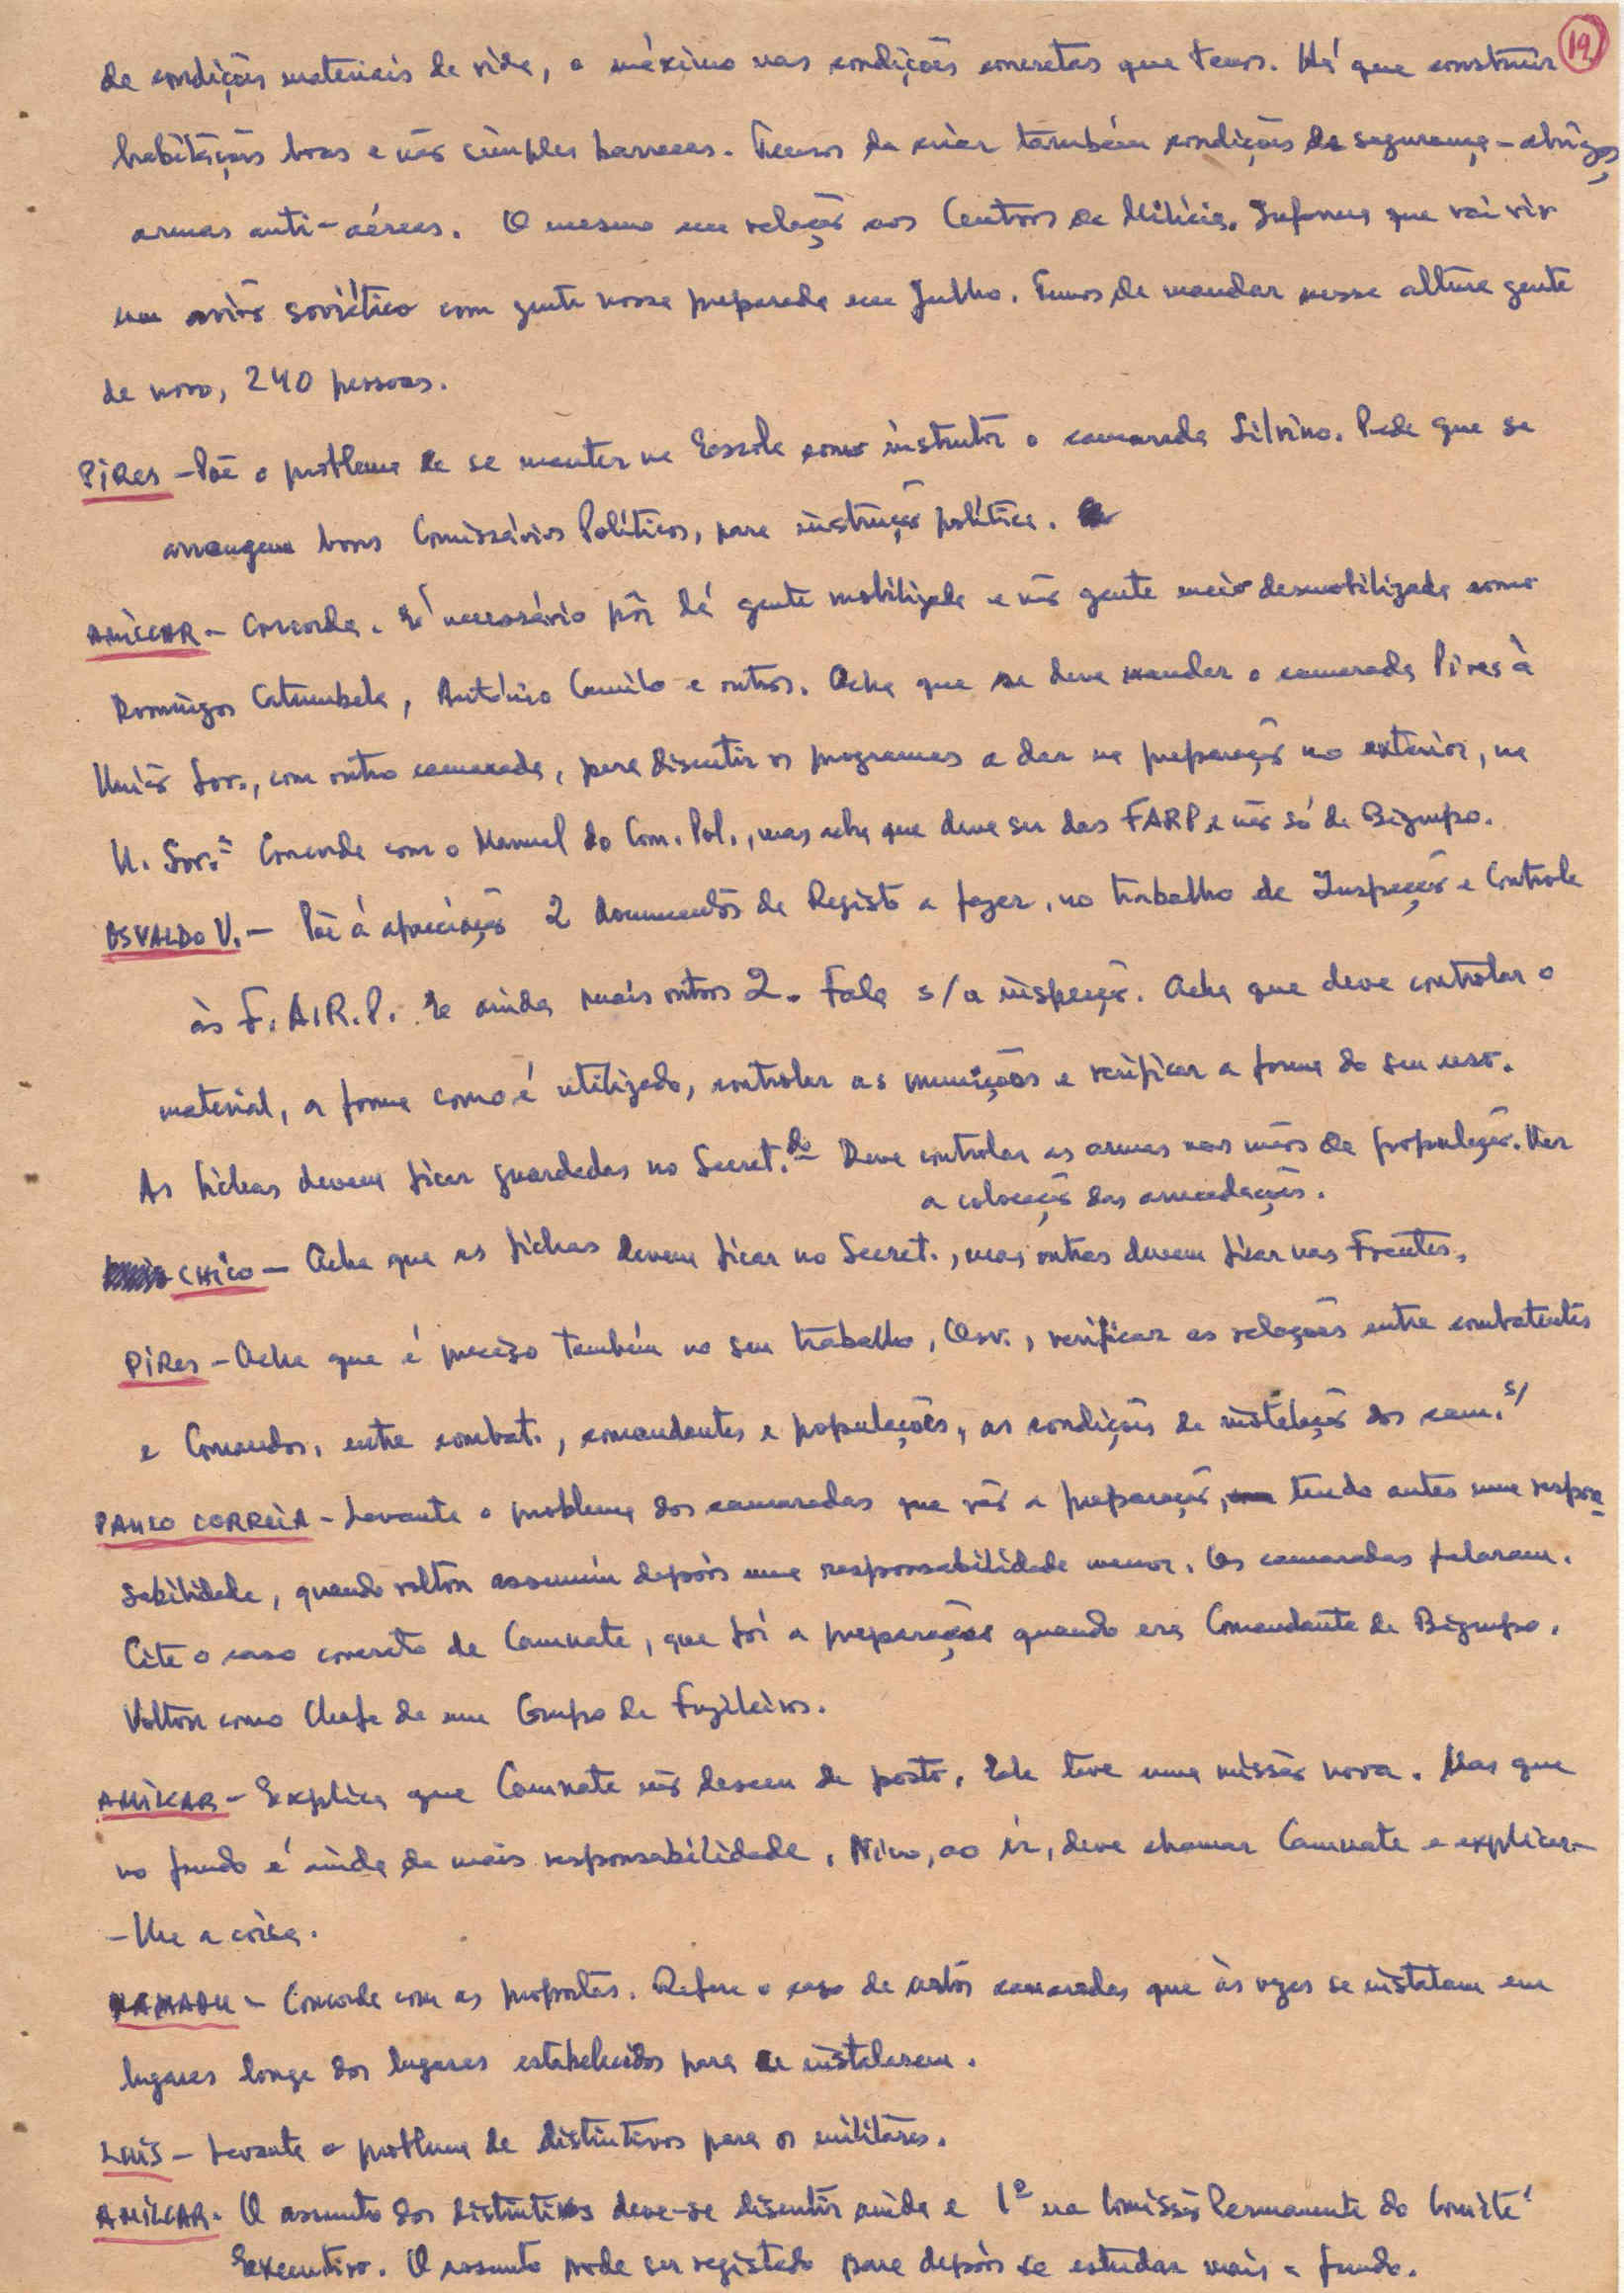 19
de condições materiais de vida, o máximo nas condições concretas que temos. Há que construir
habitações boas e não simples barracas. Temos de criar também condições de segurança - abrigos,
armas anti-aéreas. O mesmo em relação aos Centros de Milícia. Informa que vai vir
um avião soviético com gente nossa preparada em Julho. Temos de mandar nessa altura gente
de novo, 240 pessoas.
PIRES - Põe o problema de se manter na Escola como instrutor o camarada Silvino. Pede que se
arrangem bons Comissários Políticos, para instrução política.
AMÍLCAR - Concorda. É necessário pôr lá gente mobilizada e não gente meio desmobilizada como
Domingos Catumbela, António Camilo e outros. Acha que se deve mandar o camarada Pires à
União Sov., com outro camarada, para discutir os programas a dar na preparação no exterior, na
U. Sov.ª Concorda com o Manuel do Com. Pol., mas acha que deve ser das FARP e não só de Bigrupo.
OSVALDO V. - Põe à apreciação 2 documentos de Registo a fazer, no trabalho de Inspecção e Controle
às F.A.R.P. E ainda mais outros 2. Fala s/ a inspecção. Acha que deve controlar o
material, a forma como é utilizado, controlar as munições e verificar a forma do seu uso.
As fichas devem ficar guardadas no Secret.do Deve controlar as armas nas mãos da população. Ver
a colocação das arrecadações.
CHICO - Acha que as fichas devem ficar no Secret., mas outras devem ficar nas Frentes.
PIRES - Acha que é preciso também no seu trabalho, Osv., verificar as relações entre combatentes
e Comandos, entre combat., comandantes e populações, as condições de instalação dos cam.s/
PAULO CORREIA - Levanta o problema dos camaradas que vão a preparação, tendo antes uma respon-
sabilidade, quando voltam assumem depois uma responsabilidade menor. Os camaradas falaram.
Cita o caso concreto de Camnate, que foi a preparação quando era Comandante de Bigrupo.
Voltou como Chefe de um Grupo de Fuzileiros.
AMÍLCAR - Explica que Camnate não desceu de posto. Ele teve uma missão nova. Mas que
no fundo é ainda de mais responsabilidade. Nino, ao ir, deve chamar Camnate e explicar-
-lhe a coisa.
MAMADU - Concorda com as propostas. Refere o caso de certos camaradas que às vezes se instalam em
lugares longe dos lugares estabelecidos para se instalarem.
LUÍS - Levanta o problema de distintivos para os militares.
AMÍLCAR - O assunto dos distintivos deve-se discutir ainda e 1º na Comissão Permanente do Comité
Executivo. O assunto pode ser registado para depois se estudar mais a fundo.